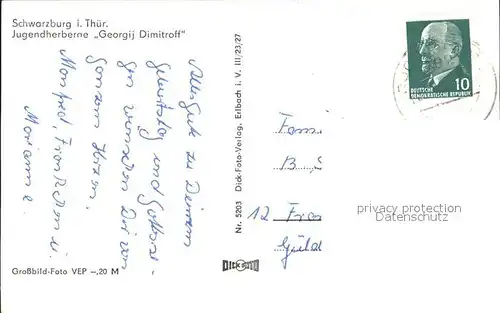 Schwarzburg i. Thür.
Jugendherberne „Georgij Dimitroff"
Alles gute zu Deinem
Geburtstag und Gottes Se-
gen wünschen Dir von
Ganzem Herzen.
Manfred, Fränzchen u.
Marianne.
Großbild-Foto VEP –,20 M
Nr. 5203 Dick-Foto-Verlag, Erlbach i. V. III/23/27
DICK
DEUTSCHE
DEMOKRATISCHE REPUBLIK
10
Fami
B
12
Güld
privacy protection
Datenschutz